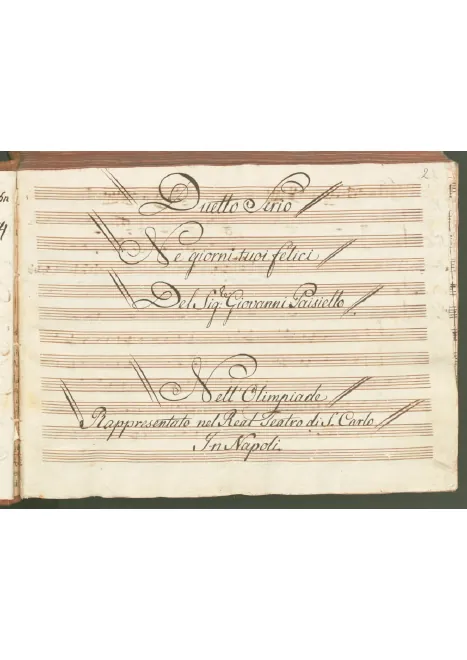 2
Duetto Serio
Ne giorni tuoi felici
Del Sig.r Giovanni Paisiello
Nell'Olimpiade
Rappresentato nel Real Teatro di S. Carlo
In Napoli.